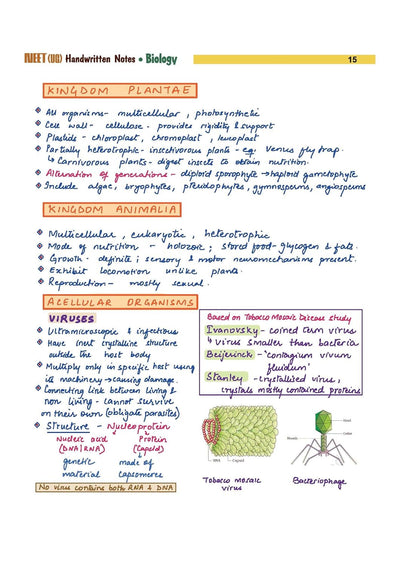 NEET (UG) Handwritten Notes • Biology 15
KINGDOM PLANTAE
All organisms- multicellular, photosynthetic
Cell wall- cellulose- provides rigidity & support
Plastids- chloroplast, chromoplast, leucoplast
Partially heterotrophic- insectivorous plants- eg: Venus fly trap.
↳ Carnivorous plants- digest insects to obtain nutrition.
Alternation of generations- diploid sporophyte → haploid gametophyte
Include algae, bryophytes, pteridophytes, gymnosperms, angiosperms
KINGDOM ANIMALIA
Multicellular, eukaryotic, heterotrophic
Mode of nutrition - holozoic; stored food- glycogen & fats.
Growth- definite; sensory & motor neuromechanisms present.
Exhibit locomotion unlike plants.
Reproduction- mostly sexual.
ACELLULAR ORGANISMS
VIRUSES
Ultramicroscopic & infectious
Have inert crystalline structure
outside the host body
Multiply only in specific host using
its machinery → causing damage.
Connecting link between living &
non living- cannot survive
on their own (obligate parasites)
Structure - Nucleoprotein
Nucleic acid Protein
(DNA|RNA) (Capsid)
genetic made of
material capsomeres
No virus contains both RNA & DNA
Based on Tobacco Mosaic Disease study
Ivanovsky- coined term virus
↳ virus smaller than bacteria
Beijerinck- "contagium vivum
fluidum"
Stanley- crystallized virus,
crystals mostly contained proteins
RNA Capsid
Tobacco mosaic
virus
Head
Collar
Sheath
Bacteriophage